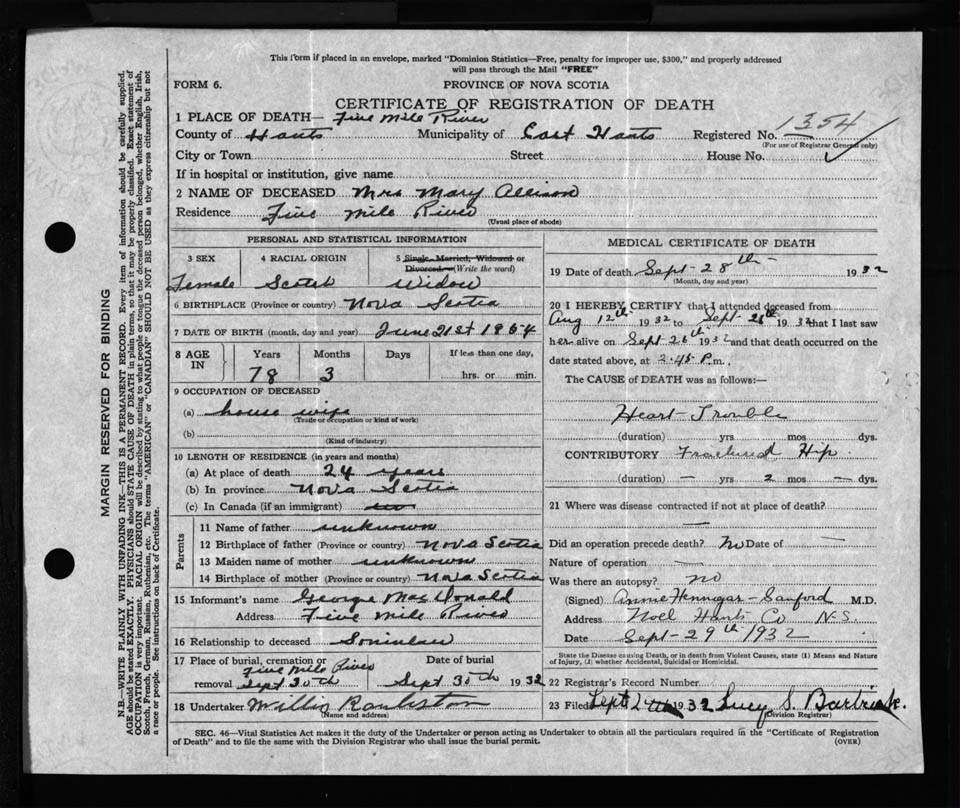 This form if placed in an envelope, marked "Dominion Statistics—Free, penalty for improper use, $300," and properly addressed
will pass through the Mail "FREE"
FORM 6.
PROVINCE OF NOVA SCOTIA
CERTIFICATE OF REGISTRATION OF DEATH
1 PLACE OF DEATH— Five Mile River
County of Hants Municipality of East Hants Registered No. 1354
(For use of Registrar General only)
City or Town Street House No.
If in hospital or institution, give name
2 NAME OF DECEASED Mrs Mary Allison
Residence Five Mile River
(Usual place of abode)
PERSONAL AND STATISTICAL INFORMATION
3 SEX 4 RACIAL ORIGIN 5 Single, Married, Widowed or
Divorced.—(Write the word)
Female Scotch Widow
6 BIRTHPLACE (Province or country) Nova Scotia
7 DATE OF BIRTH (month, day and year) June 21st 1854
8 AGE IN Years Months Days If less than one day,
78 3 hrs. or min.
9 OCCUPATION OF DECEASED
(a) house wife
(Trade or occupation or kind of work)
(b)
(Kind of industry)
10 LENGTH OF RESIDENCE (in years and months)
(a) At place of death 24 years
(b) In province Nova Scotia
(c) In Canada (if an immigrant)
Parents
11 Name of father unknown
12 Birthplace of father (Province or country) Nova Scotia
13 Maiden name of mother unknown
14 Birthplace of mother (Province or country) Nova Scotia
15 Informant's name George MacDonald
Address Five Mile River
16 Relationship to deceased Soninlaw
17 Place of burial, cremation or Date of burial
Five Mile River
removal Sept 30th Sept 30th 1932
18 Undertaker
(Name and address)
MEDICAL CERTIFICATE OF DEATH
19 Date of death Sept-28th- 1932
(Month, day and year)
20 I HEREBY CERTIFY that I attended deceased from
Aug 12th 1932 to Sept-26th 1932 that I last saw
her alive on Sept 26th 1932 and that death occurred on the
date stated above, at 2.45 P.m.
The CAUSE of DEATH was as follows:—
Heart-Trouble
(duration) yrs mos dys.
CONTRIBUTORY Fractured Hip.
(duration) — yrs 2 mos — dys.
21 Where was disease contracted if not at place of death?
—
Did an operation precede death? No Date of —
Nature of operation —
Was there an autopsy? no
(Signed) Annie Hennigar-Sanford M.D.
Address Noel Hants Co N-S.
Date Sept-29th 1932
State the Disease causing Death, or in death from Violent Causes, state (1) Means and Nature
of Injury, (2) whether Accidental, Suicidal or Homicidal.
22 Registrar's Record Number
23 Filed Sept 1932 Lucy S.
(Division Registrar)
SEC. 46—Vital Statistics Act makes it the duty of the Undertaker or person acting as Undertaker to obtain all the particulars required in the "Certificate of Registration
of Death" and to file the same with the Division Registrar who shall issue the burial permit. (OVER)
MARGIN RESERVED FOR BINDING
N.B.—WRITE PLAINLY WITH UNFADING INK—THIS IS A PERMANENT RECORD. Every item of information should be carefully supplied.
AGE should be stated EXACTLY. PHYSICIANS should STATE CAUSE OF DEATH in plain terms, so that it may be properly classified. Exact statement of
OCCUPATION is very important. RACIAL ORIGIN will be described by stating to what people or tongue the deceased person belonged, whether English, Irish,
Scotch, French, German, Russian, Ruthenian, etc. The terms "AMERICAN" or "CANADIAN" SHOULD NOT BE USED as they express citizenship but not
a race or people. See instructions on back of Certificate.